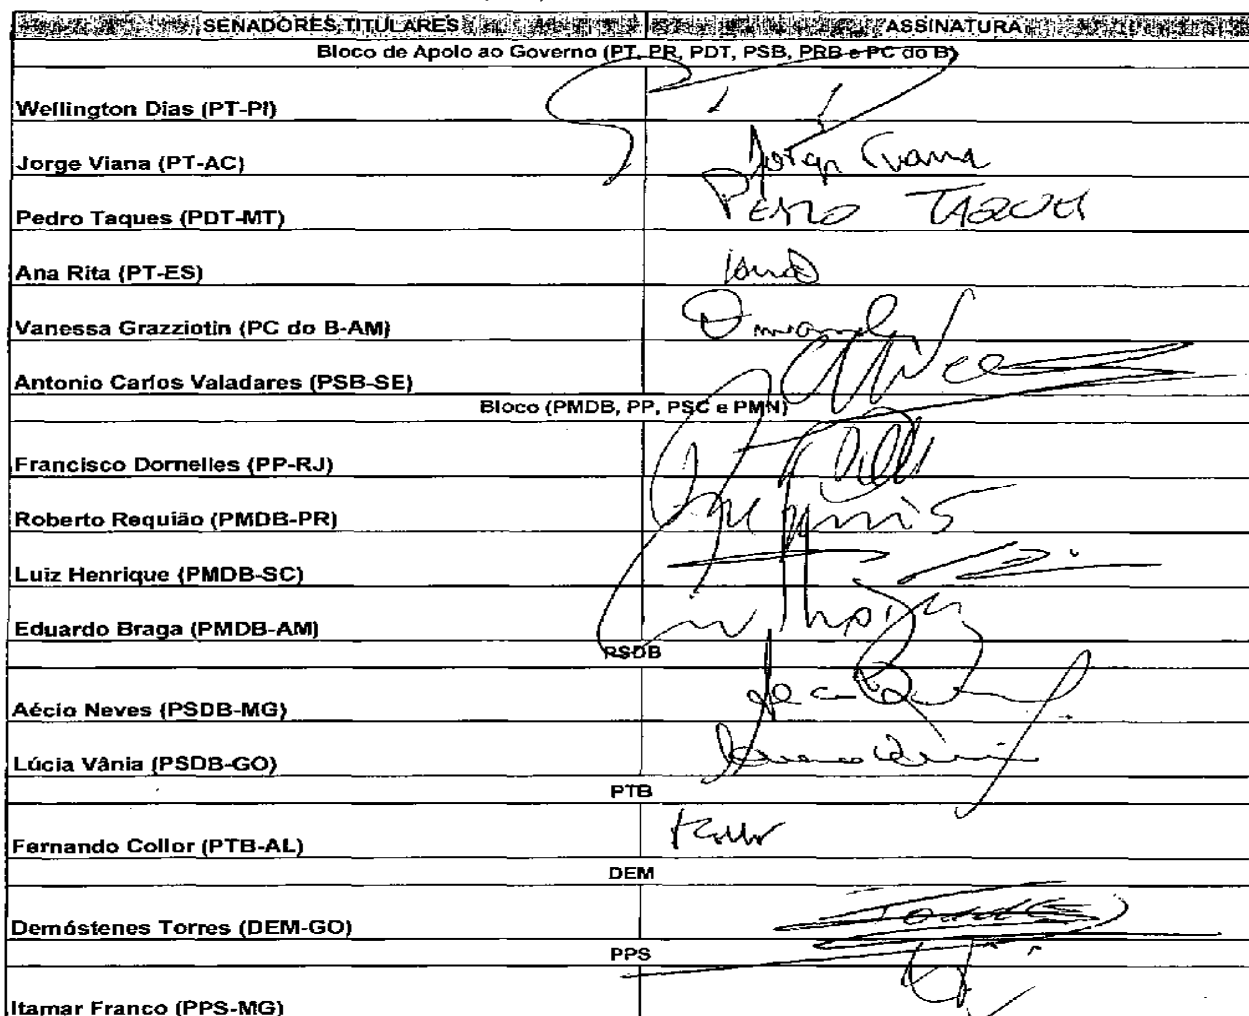 SENADORES TITULARES ASSINATURA
Bloco de Apoio ao Governo (PT, PR, PDT, PSB, PRB e PC do B)
Wellington Dias (PT-PI)
Jorge Viana (PT-AC) Jorge Viana
Pedro Taques (PDT-MT) PEDRO TAQUES
Ana Rita (PT-ES)
Vanessa Grazziotin (PC do B-AM)
Antonio Carlos Valadares (PSB-SE)
Bloco (PMDB, PP, PSC e PMN)
Francisco Dornelles (PP-RJ)
Roberto Requião (PMDB-PR)
Luiz Henrique (PMDB-SC)
Eduardo Braga (PMDB-AM)
PSDB
Aécio Neves (PSDB-MG)
Lúcia Vânia (PSDB-GO)
PTB
Fernando Collor (PTB-AL)
DEM
Demóstenes Torres (DEM-GO)
PPS
Itamar Franco (PPS-MG)